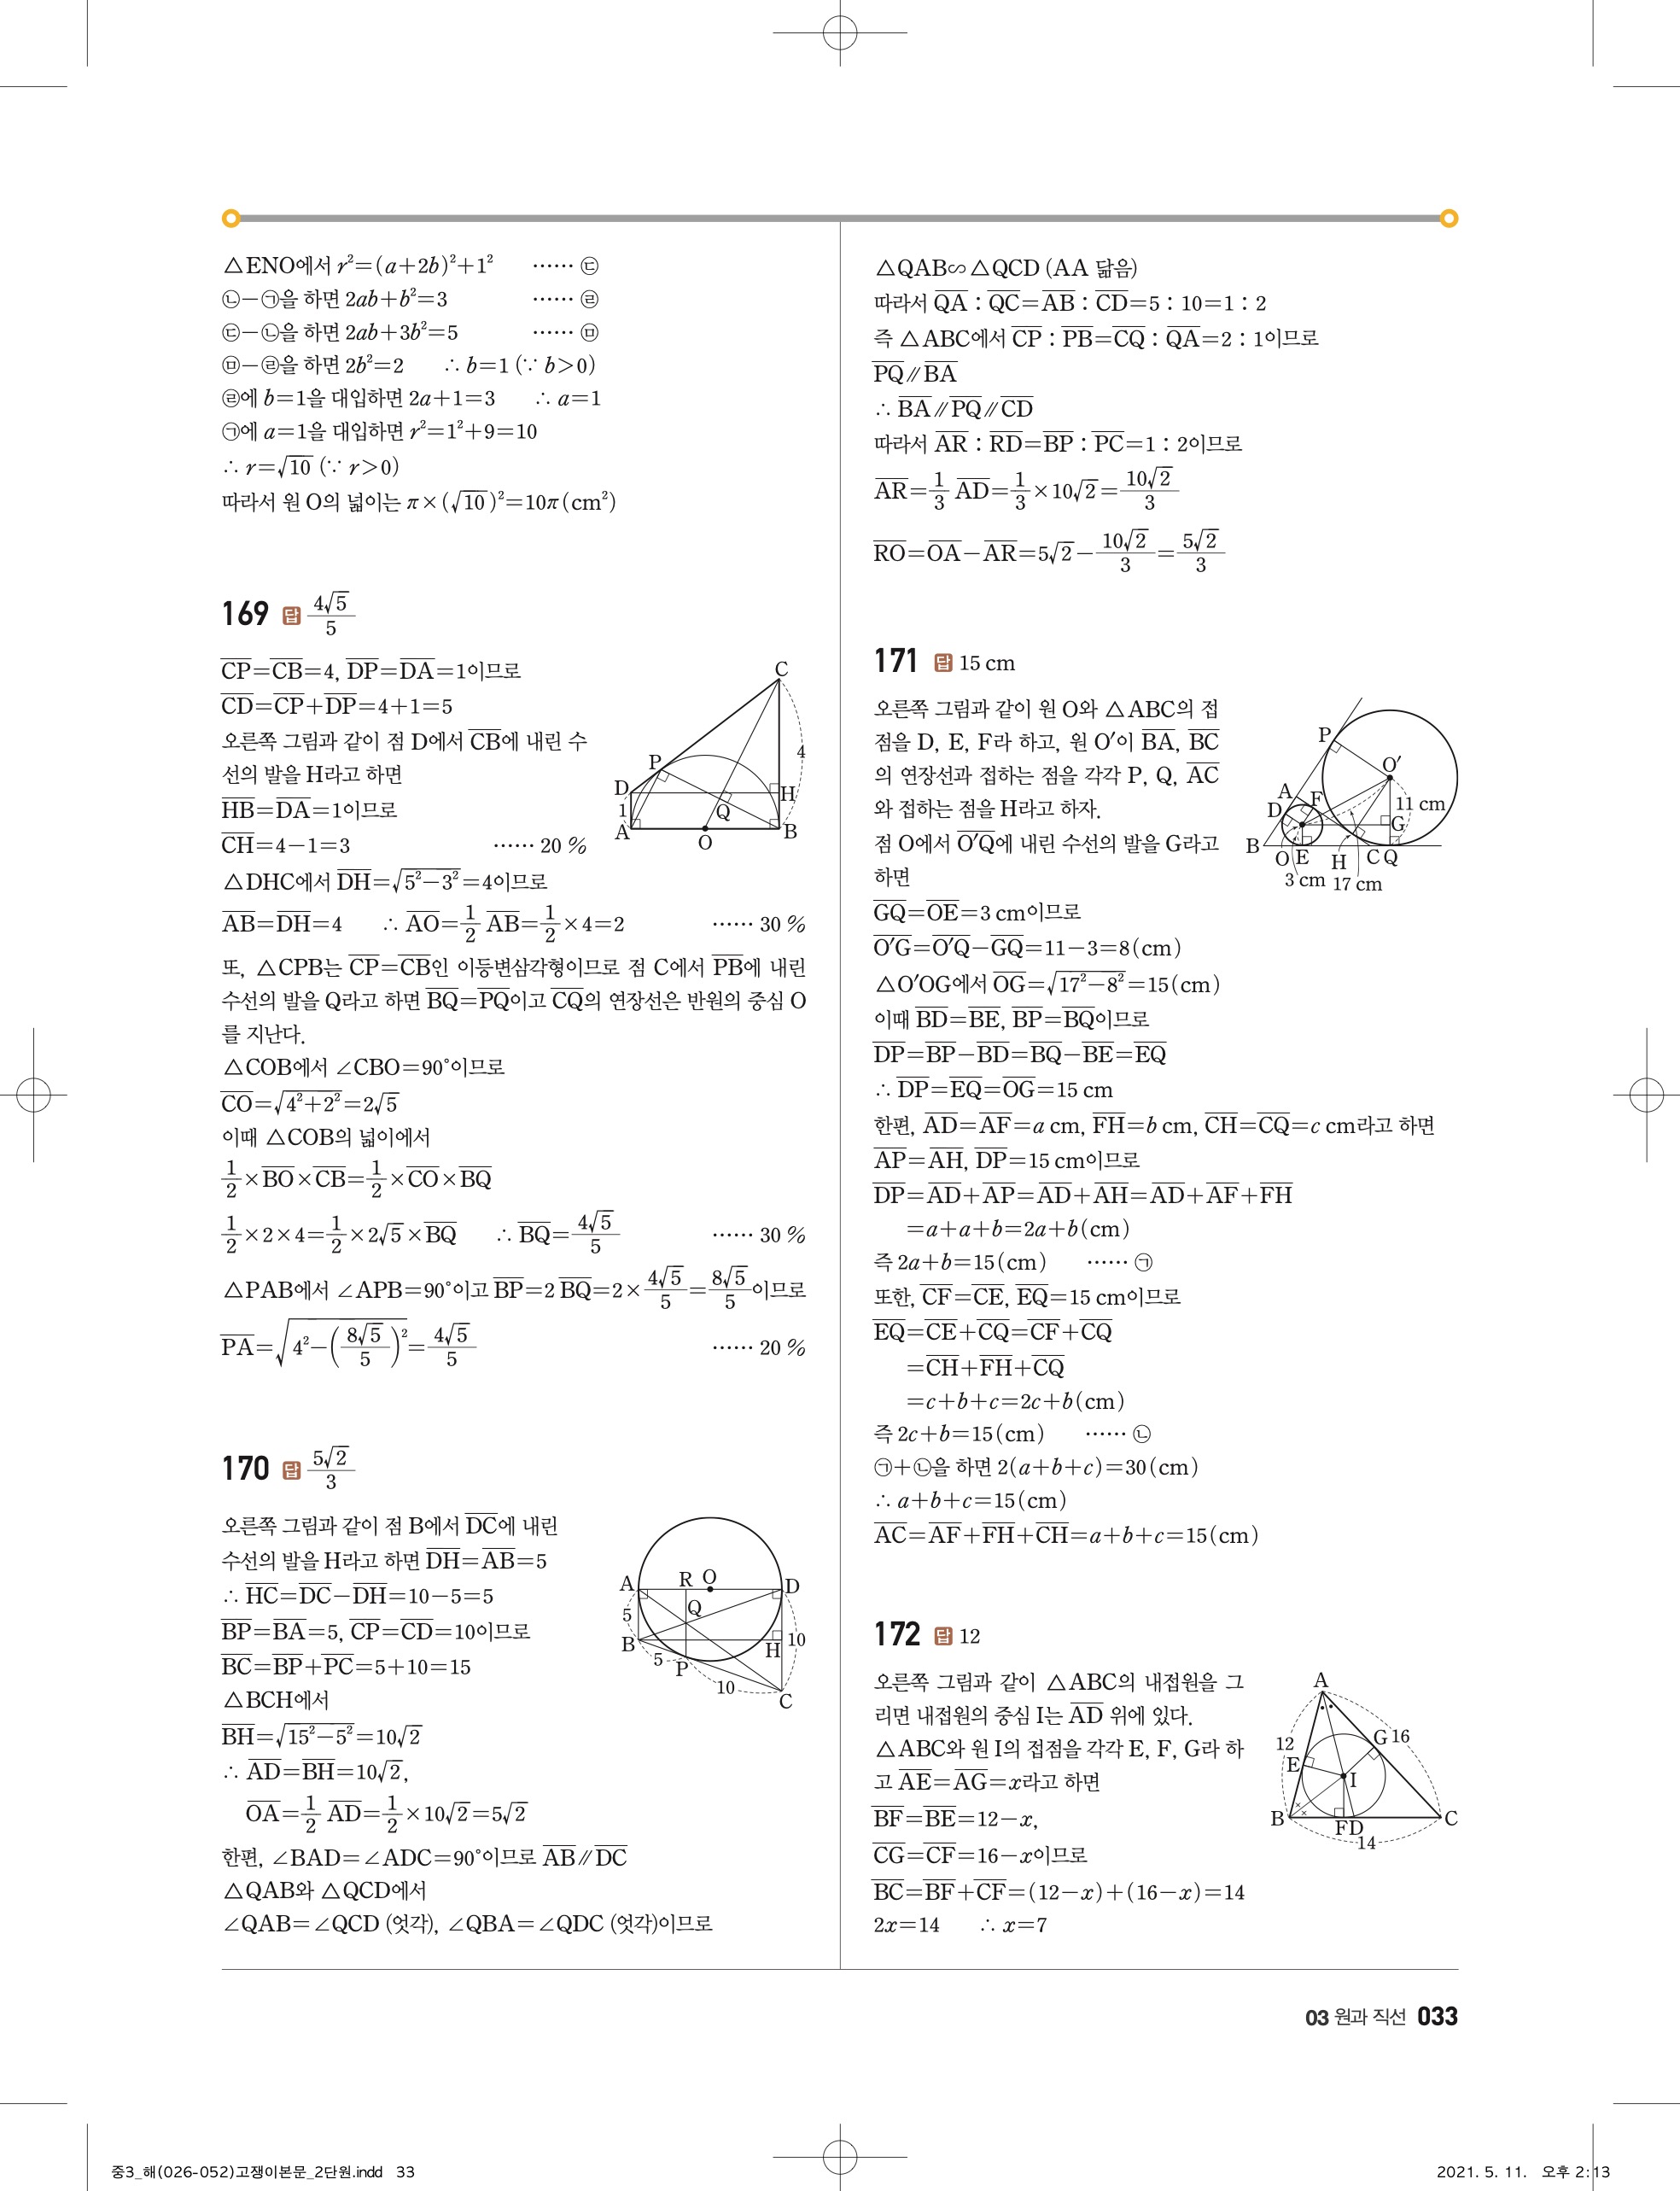 △ENO에서 r²=(a+2b)²+1² …… ㉢
㉡-㉠을 하면 2ab+b²=3 …… ㉣
㉢-㉡을 하면 2ab+3b²=5 …… ㉤
㉤-㉣을 하면 2b²=2 ∴ b=1 (∵ b>0)
㉣에 b=1을 대입하면 2a+1=3 ∴ a=1
㉠에 a=1을 대입하면 r²=1²+9=10
∴ r=√10 (∵ r>0)
따라서 원 O의 넓이는 π×(√10)²=10π(cm²)
169 답 4√5/5
C̅P̅=C̅B̅=4, D̅P̅=D̅A̅=1이므로
C̅D̅=C̅P̅+D̅P̅=4+1=5
오른쪽 그림과 같이 점 D에서 C̅B̅에 내린 수
선의 발을 H라고 하면
H̅B̅=D̅A̅=1이므로
C̅H̅=4-1=3 …… 20 %
C
4
P
D
H
1
Q
A
O
B
△DHC에서 D̅H̅=√(5²-3²)=4이므로
A̅B̅=D̅H̅=4 ∴ A̅O̅=1/2 A̅B̅=1/2×4=2 …… 30 %
또, △CPB는 C̅P̅=C̅B̅인 이등변삼각형이므로 점 C에서 P̅B̅에 내린
수선의 발을 Q라고 하면 B̅Q̅=P̅Q̅이고 C̅Q̅의 연장선은 반원의 중심 O
를 지난다.
△COB에서 ∠CBO=90°이므로
C̅O̅=√(4²+2²)=2√5
이때 △COB의 넓이에서
1/2×B̅O̅×C̅B̅=1/2×C̅O̅×B̅Q̅
1/2×2×4=1/2×2√5×B̅Q̅ ∴ B̅Q̅=4√5/5 …… 30 %
△PAB에서 ∠APB=90°이고 B̅P̅=2 B̅Q̅=2×4√5/5=8√5/5이므로
P̅A̅=√(4²-(8√5/5)²)=4√5/5 …… 20 %
170 답 5√2/3
오른쪽 그림과 같이 점 B에서 D̅C̅에 내린
수선의 발을 H라고 하면 D̅H̅=A̅B̅=5
∴ H̅C̅=D̅C̅-D̅H̅=10-5=5
B̅P̅=B̅A̅=5, C̅P̅=C̅D̅=10이므로
B̅C̅=B̅P̅+P̅C̅=5+10=15
△BCH에서
B̅H̅=√(15²-5²)=10√2
∴ A̅D̅=B̅H̅=10√2,
O̅A̅=1/2 A̅D̅=1/2×10√2=5√2
A
R O
D
5
Q
B
H
10
5
P
10
C
한편, ∠BAD=∠ADC=90°이므로 A̅B̅∥D̅C̅
△QAB와 △QCD에서
∠QAB=∠QCD (엇각), ∠QBA=∠QDC (엇각)이므로
△QAB∽△QCD (AA 닮음)
따라서 Q̅A̅ : Q̅C̅=A̅B̅ : C̅D̅=5 : 10=1 : 2
즉 △ABC에서 C̅P̅ : P̅B̅=C̅Q̅ : Q̅A̅=2 : 1이므로
P̅Q̅∥B̅A̅
∴ B̅A̅∥P̅Q̅∥C̅D̅
따라서 A̅R̅ : R̅D̅=B̅P̅ : P̅C̅=1 : 2이므로
A̅R̅=1/3 A̅D̅=1/3×10√2=10√2/3
R̅O̅=O̅A̅-A̅R̅=5√2-10√2/3=5√2/3
171 답 15 cm
오른쪽 그림과 같이 원 O와 △ABC의 접
점을 D, E, F라 하고, 원 O′이 B̅A̅, B̅C̅
의 연장선과 접하는 점을 각각 P, Q, A̅C̅
와 접하는 점을 H라고 하자.
점 O에서 O̅′̅Q̅에 내린 수선의 발을 G라고
하면
P
O′
A
F
D
11 cm
G
B
O E H C Q
3 cm 17 cm
G̅Q̅=O̅E̅=3 cm이므로
O̅′̅G̅=O̅′̅Q̅-G̅Q̅=11-3=8(cm)
△O′OG에서 O̅G̅=√(17²-8²)=15(cm)
이때 B̅D̅=B̅E̅, B̅P̅=B̅Q̅이므로
D̅P̅=B̅P̅-B̅D̅=B̅Q̅-B̅E̅=E̅Q̅
∴ D̅P̅=E̅Q̅=O̅G̅=15 cm
한편, A̅D̅=A̅F̅=a cm, F̅H̅=b cm, C̅H̅=C̅Q̅=c cm라고 하면
A̅P̅=A̅H̅, D̅P̅=15 cm이므로
D̅P̅=A̅D̅+A̅P̅=A̅D̅+A̅H̅=A̅D̅+A̅F̅+F̅H̅
=a+a+b=2a+b(cm)
즉 2a+b=15(cm) …… ㉠
또한, C̅F̅=C̅E̅, E̅Q̅=15 cm이므로
E̅Q̅=C̅E̅+C̅Q̅=C̅F̅+C̅Q̅
=C̅H̅+F̅H̅+C̅Q̅
=c+b+c=2c+b(cm)
즉 2c+b=15(cm) …… ㉡
㉠+㉡을 하면 2(a+b+c)=30(cm)
∴ a+b+c=15(cm)
A̅C̅=A̅F̅+F̅H̅+C̅H̅=a+b+c=15(cm)
172 답 12
오른쪽 그림과 같이 △ABC의 내접원을 그
리면 내접원의 중심 I는 A̅D̅ 위에 있다.
△ABC와 원 I의 접점을 각각 E, F, G라 하
고 A̅E̅=A̅G̅=x라고 하면
B̅F̅=B̅E̅=12-x,
C̅G̅=C̅F̅=16-x이므로
B̅C̅=B̅F̅+C̅F̅=(12-x)+(16-x)=14
2x=14 ∴ x=7
A
12
G 16
E
I
B
F D
C
14
03 원과 직선 033
중3_해(026-052)고쟁이본문_2단원.indd 33
2021. 5. 11. 오후 2:13